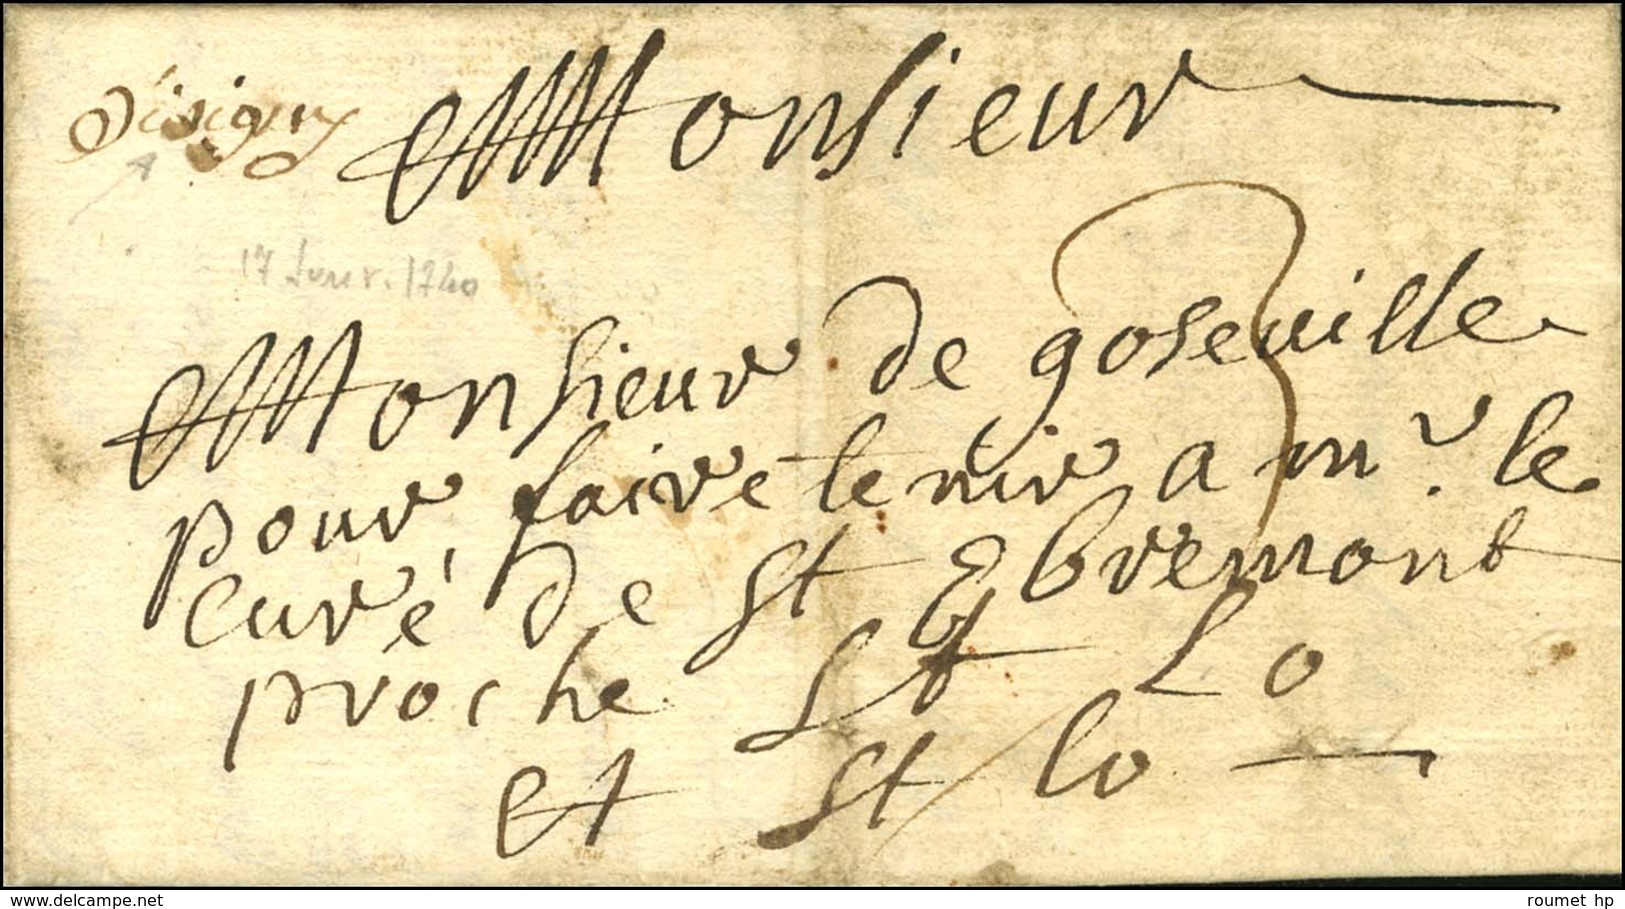 D'isigny
Monsieur
17 Janv. 1740
Monsieur de goseville
pour faire tenir a mr. le
curé de st Ebremont
proche St Lo
et St lo
delcampe.net
roumet hp